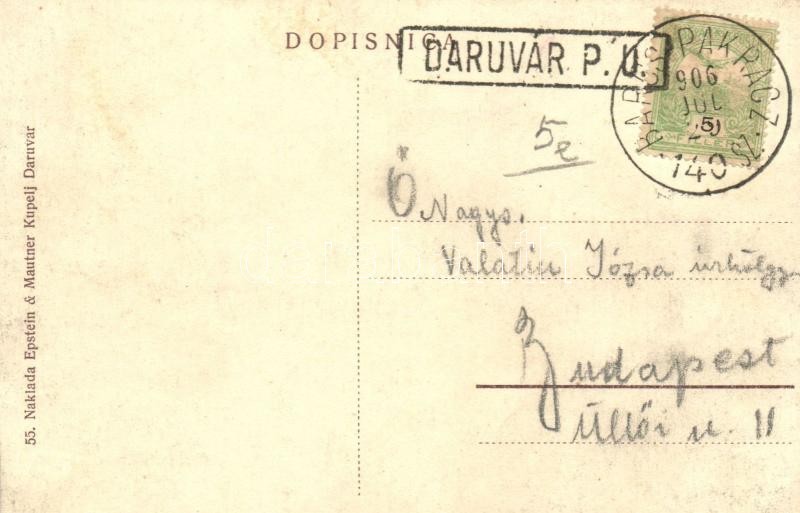 DOPISNICA
DARUVÁR P. U.
BARCS-PAKRÁCZ SZ.
906
JUL
140
5
5e
Ő Nagys.
Valatin Józsa úrhölgy
Budapest
Üllői u. 11
55. Naklada Epstein & Mautner Kupelj Daruvar